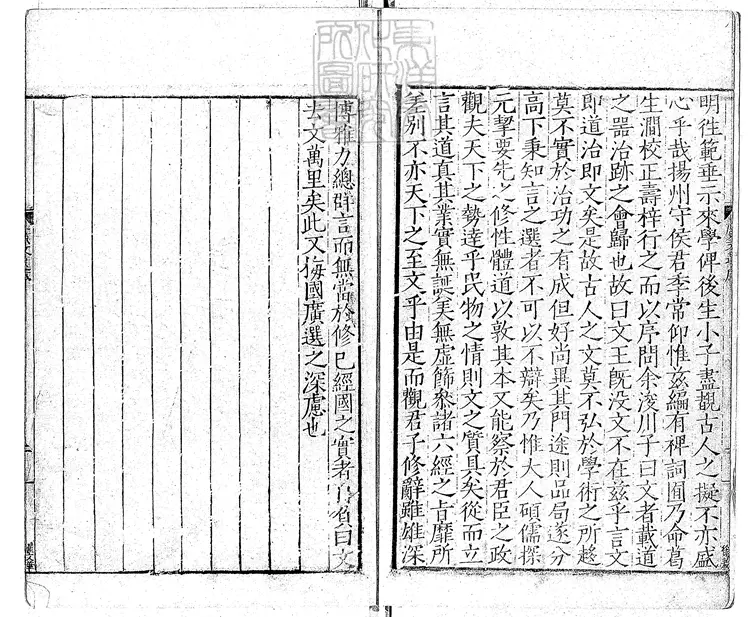 明往範垂示來學俾後生小子盡覩古人之擬不亦盛
心乎哉揚州守侯君季常仰惟茲編有裨詞囿乃命葛
生澗校正壽梓行之而以序問余浚川子曰文者載道
之器治跡之會歸也故曰文王旣没文不在茲乎言文
即道治即文矣是故古人之文莫不弘於學術之所趍
莫不實於治功之有成但好尚異其門途則品局遂分
高下秉知言之選者不可以不辯矣乃惟大人碩儒探
元挈要先之修性體道以敦其本又能察於君臣之政
觀夫天下之勢達乎民物之情則文之質具矣從而立
言其道真其業實無誕美無虛飾叅諸六經之旨靡所
差别不亦天下之至文乎由是而觀君子修辭雖雄深
博雅力總群言而無當於修巳經國之實者自負曰文
去文萬里矣此又梅國廣選之深慮也